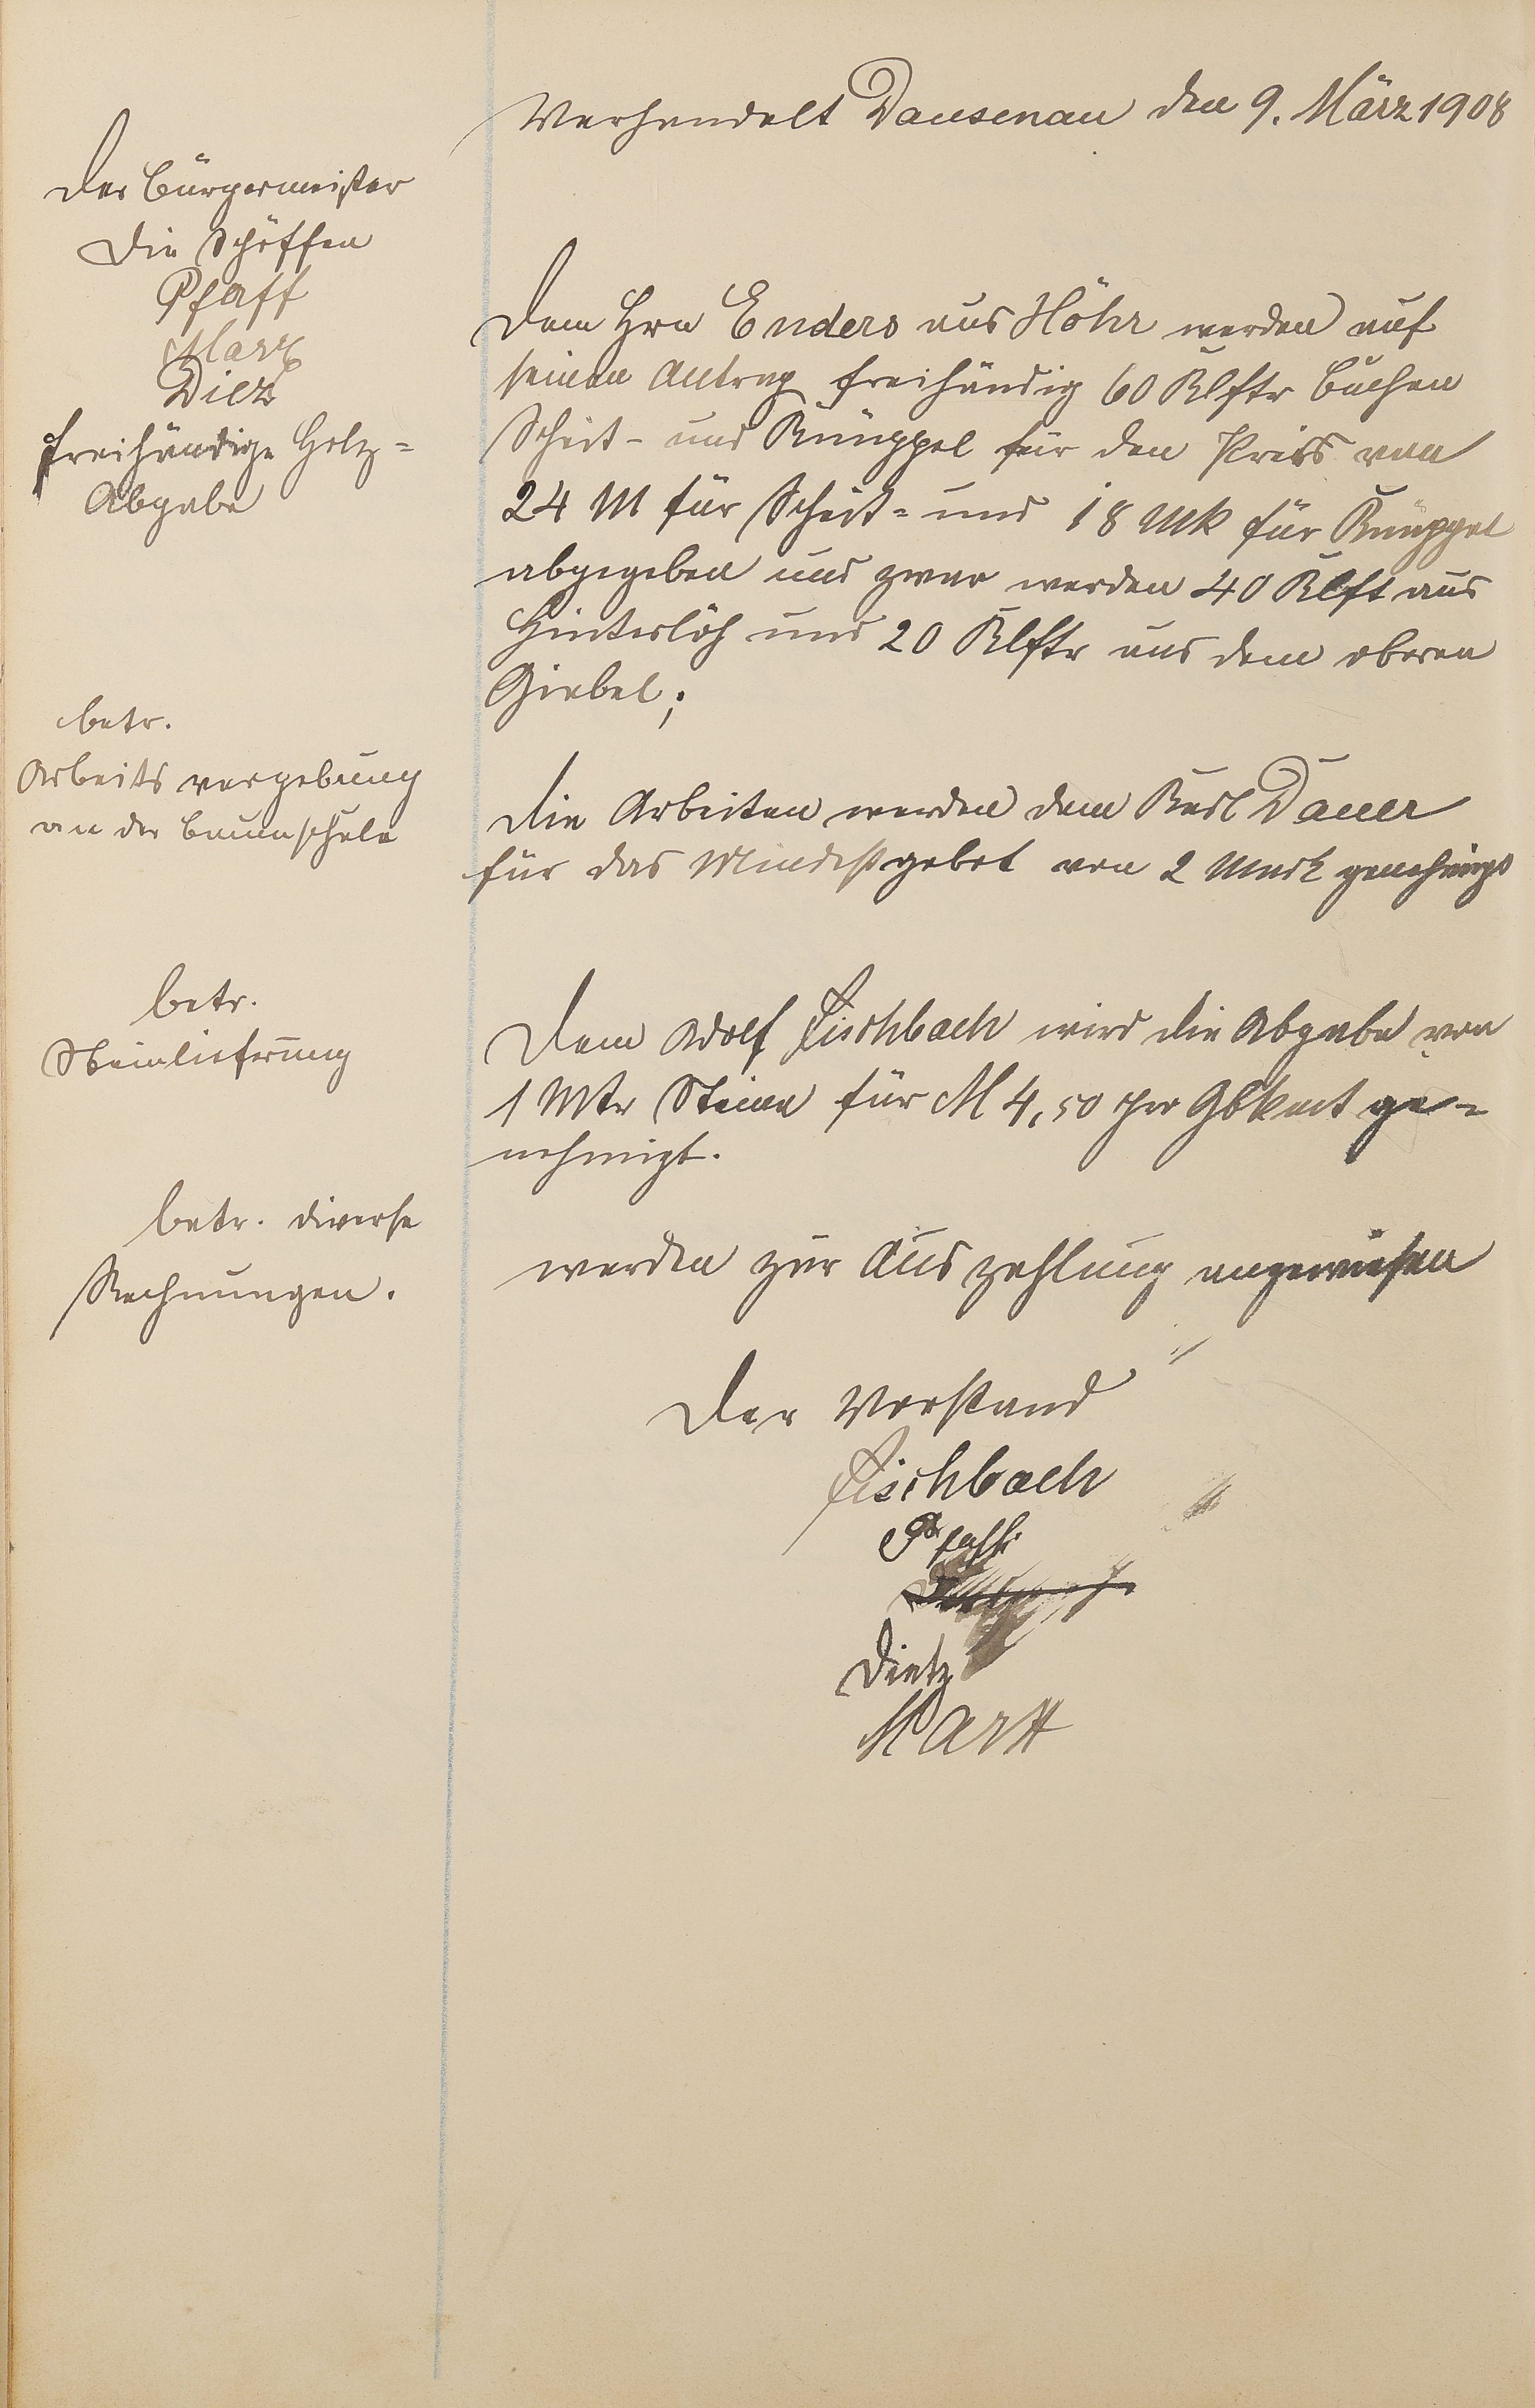 Verhandelt Dausenau den 9. März 1908
Der Bürgermeister
Die Schöffen
Pfaff
Marx
Diez
freihändige Holz-
Abgabe
Dem Hrn Enders aus Höhr werden auf
seinen Antrag freihändig 60 Klftr Buchen
Scheit- und Knüppel für den Preis von
24 M für Scheit- und 18 Mk für Knüppel
abgegeben und zwar werden 40 Klft aus
Hinterlöh und 20 Klftr aus dem oberen
Giebel;
betr.
Arbeits vergebung
an der Baumschule
Die Arbeiten werden dem Karl Dauer
für das Mindestgebot von 2 Mark genehmigt
betr.
Steinlieferung
Dem Adolf Fischbach wird die Abgabe von
1 Mtr Steine für M 4,50 per ge-
nehmigt.
betr. diverse
Rechnungen.
werden zur Aus zahlung angewiesen
Der Vorstand
Fischbach
Pfaff
Dietz
Marx